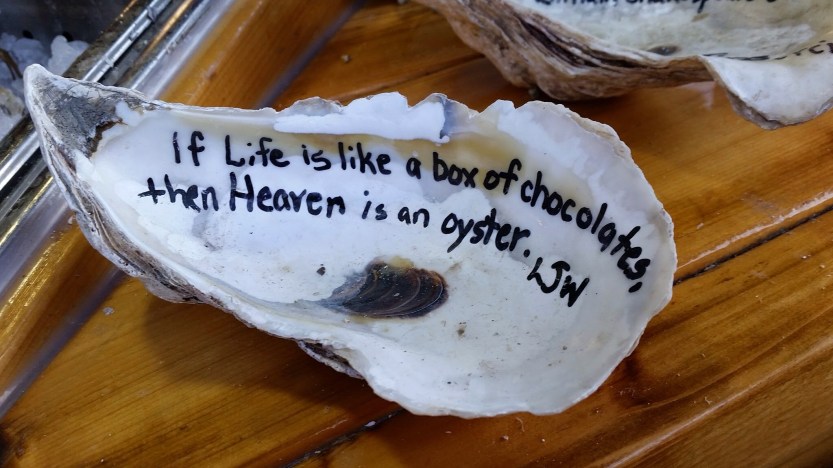 If Life is like a box of chocolates,
then Heaven is an oyster.
WJW